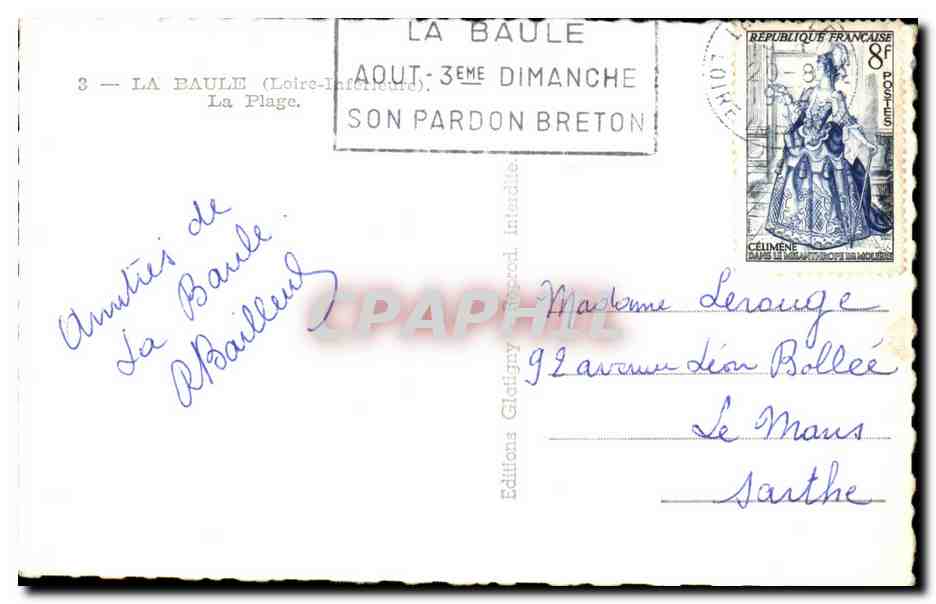 LA BAULE
AOUT - 3EME DIMANCHE
SON PARDON BRETON
3 — LA BAULE (Loire-Inférieure).
La Plage.
RÉPUBLIQUE FRANÇAISE
8F
POSTES
CÉLIMÈNE
DANS LE MISANTHROPE DE MOLIÈRE
Amitiés de
La Baule.
RBailleul
Editions Glatigny Reprod. Interdite.
CPAPHIL
Madame Lerouge
92 avenue Léon Bollée
Le Mans
Sarthe